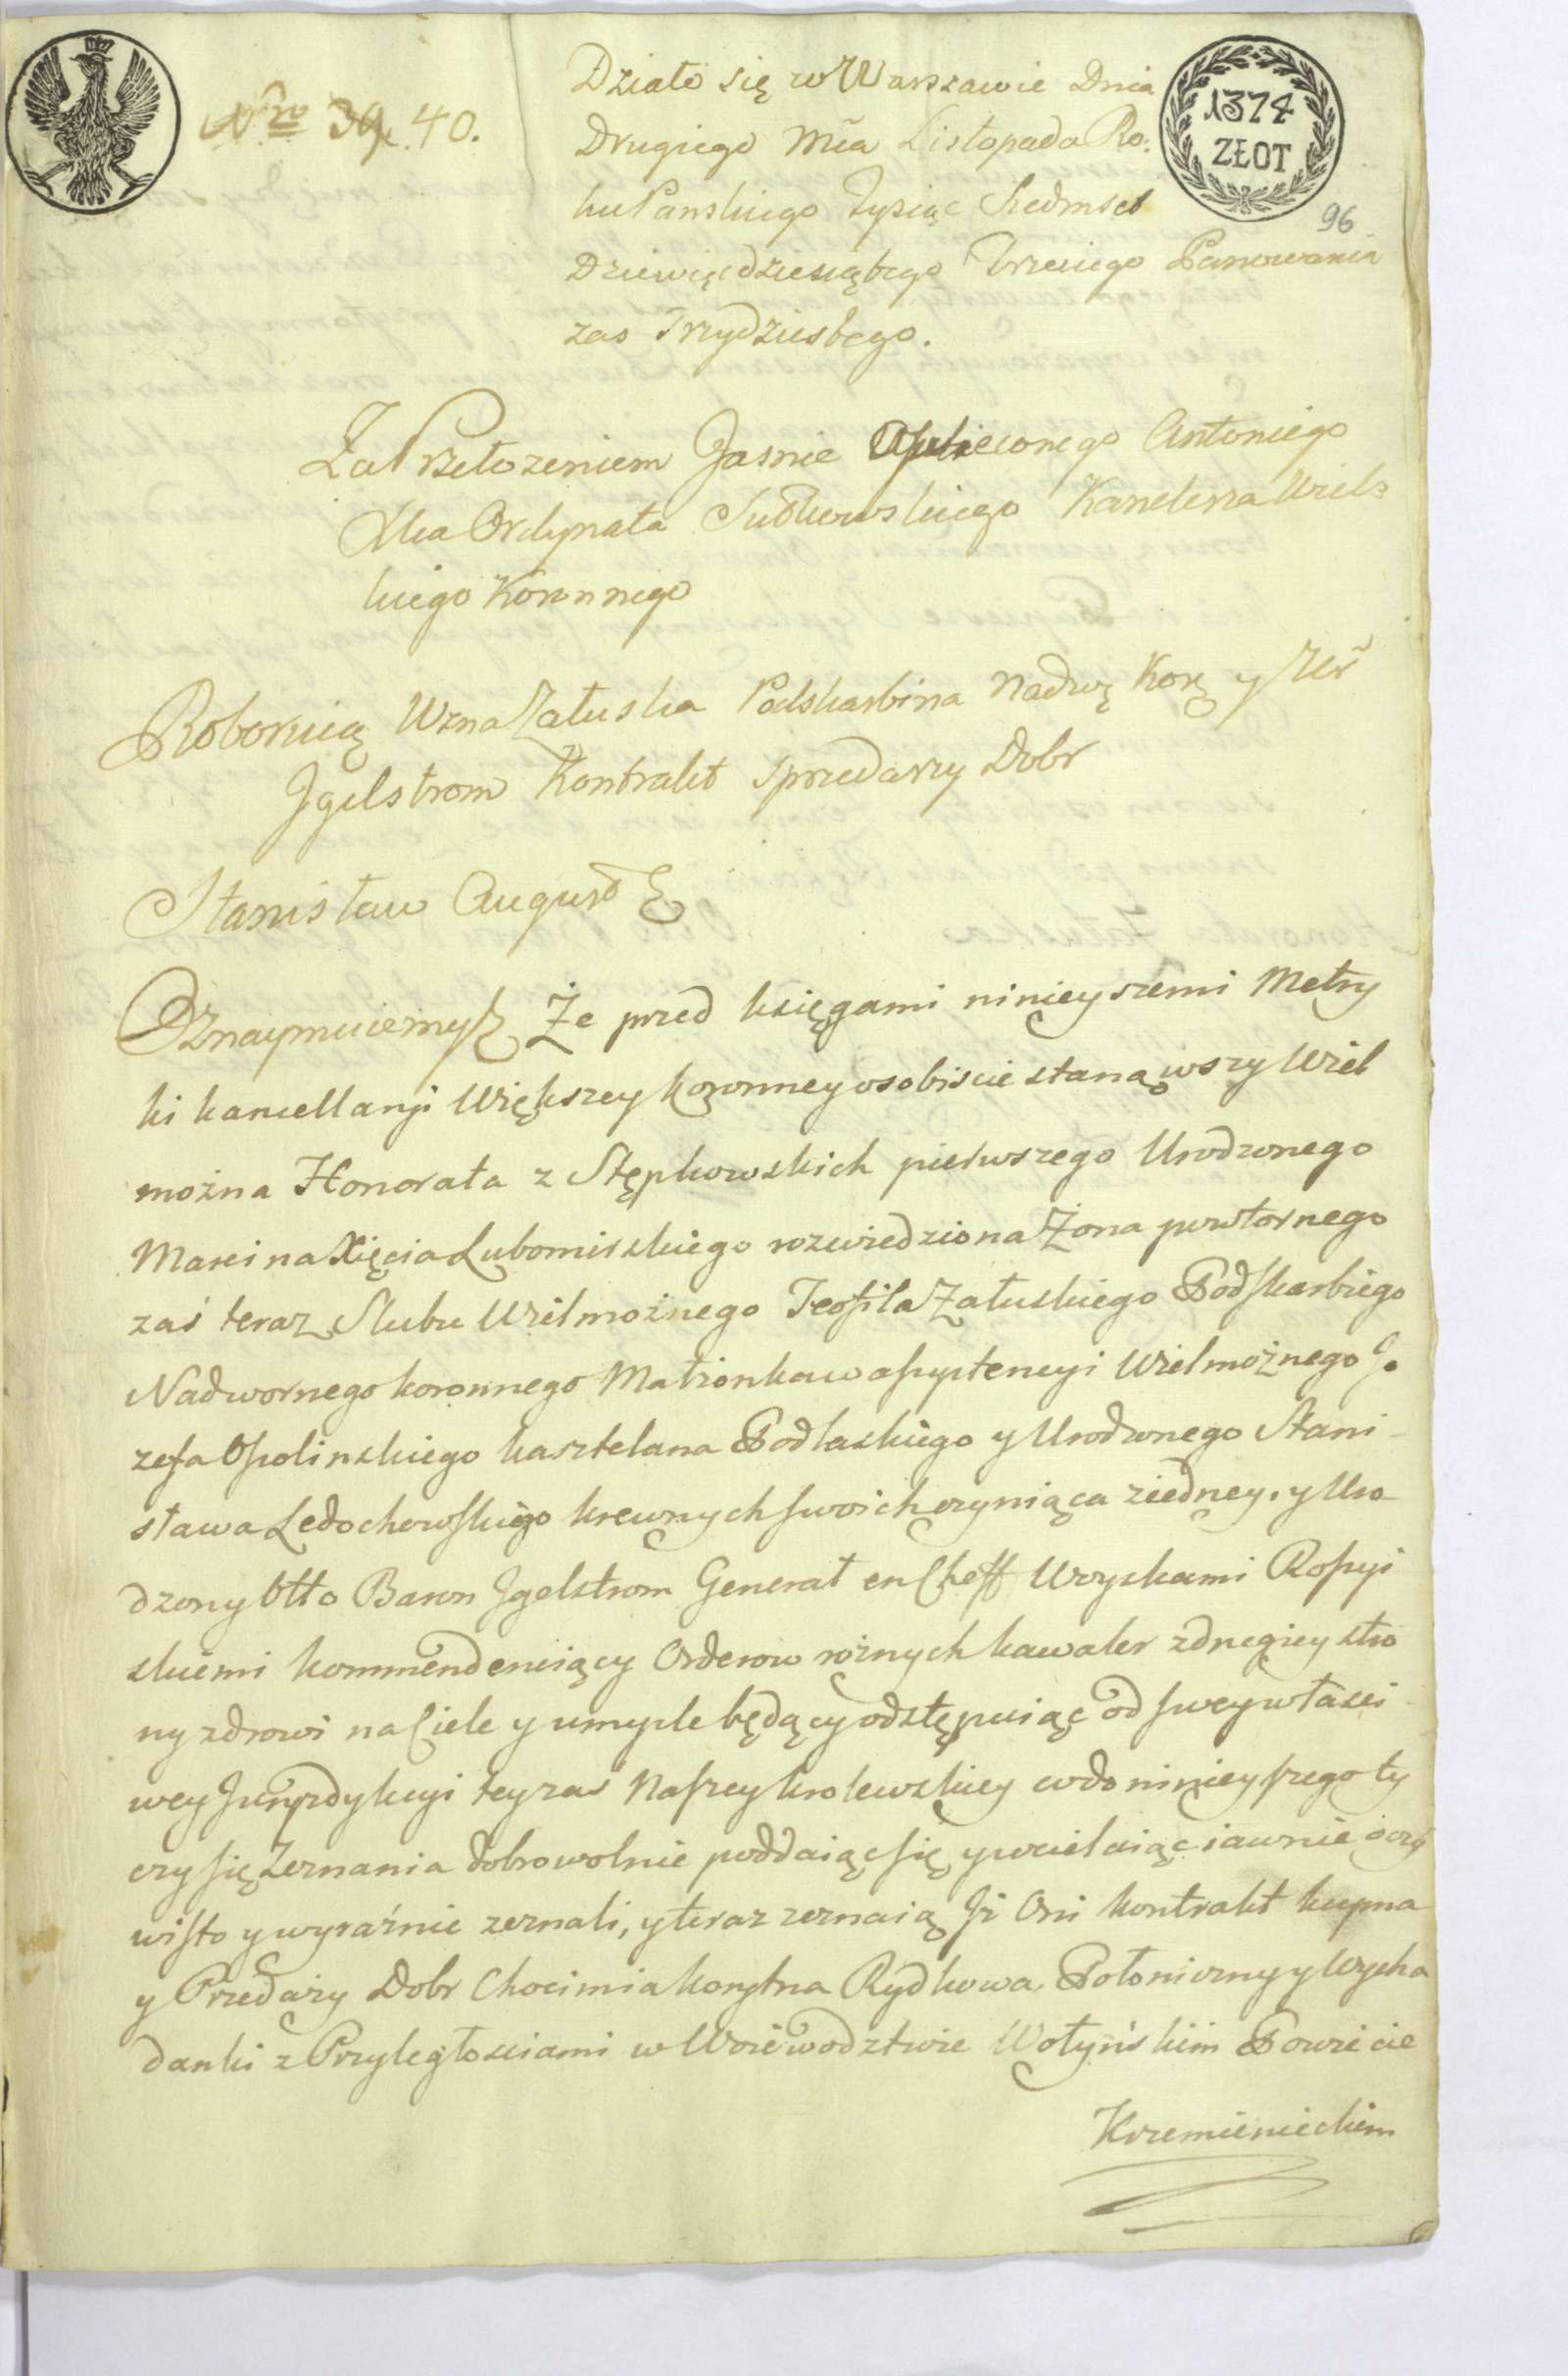 Nro 39. 40.
Działo się w Warszawie Dnia
Drugiego Mca Listopada Ro:
ku Panskiego Tysiąc Siedmset
Dziewięcdziesiątego Trzeciego Panowania
zas Trzydziestego.
1374
ZŁOT
96
Za Przełozeniem Jasnie Oswieconego Antoniego
Xcia Ordynata Sułkowskiego Kanclerza Wiel-
kiego Koronnego
Roborują Wzna Załuska Podskarbina Nadwą Korą y Ur
Jgelstrom Kontrakt sprzedarzy Dobr
Stanisław August
Oznaymuiemy Że przed księgami ninieyszemi Metry
ki kancellaryi Większey koronney osobiscie stanąwszy Wiel
można Honorata z Stępkowskich pierwszego Urodzonego
Marcina Xięcia Lubomirskiego rozwiedziona Żona powtornego
zaś teraz Slubu Wielmożnego Teofila Załuskiego Podskarbiego
Nadwornego koronnego Małżonka w assystencyi Wielmożnego Jo
zefa Opolinskiego kasztelana Podlaskiego y Urodzonego Stani-
sława Ledochowskiego krewnych swoich czyniąca ziedney, y Uro-
dzony Otto Baron Jgelstrom Generał en Cheff Woyskami Rossyi
skiemi kommenderuiący Orderow rożnych kawaler zdrugiey stro
ny zdrowi na Ciele y umysle będący odstępuiąc od swey własci-
wey Jurysdykcyi teyzas Naszey krolewskiey co do ninieyszego ty
czy się Zeznania dobrowolnie poddaiąc się y wcielaiąc iawnie oczy
wisto y wyraźnie zeznali, y teraz zeznaią Jż Oni kontrakt kupna
y Przedaży Dobr Chocimia Rydkowa Połoniczny y Wycho
danki z Przyległosciami w Woiewodztwie Wołyńskim Powiecie
Krzemienieckim